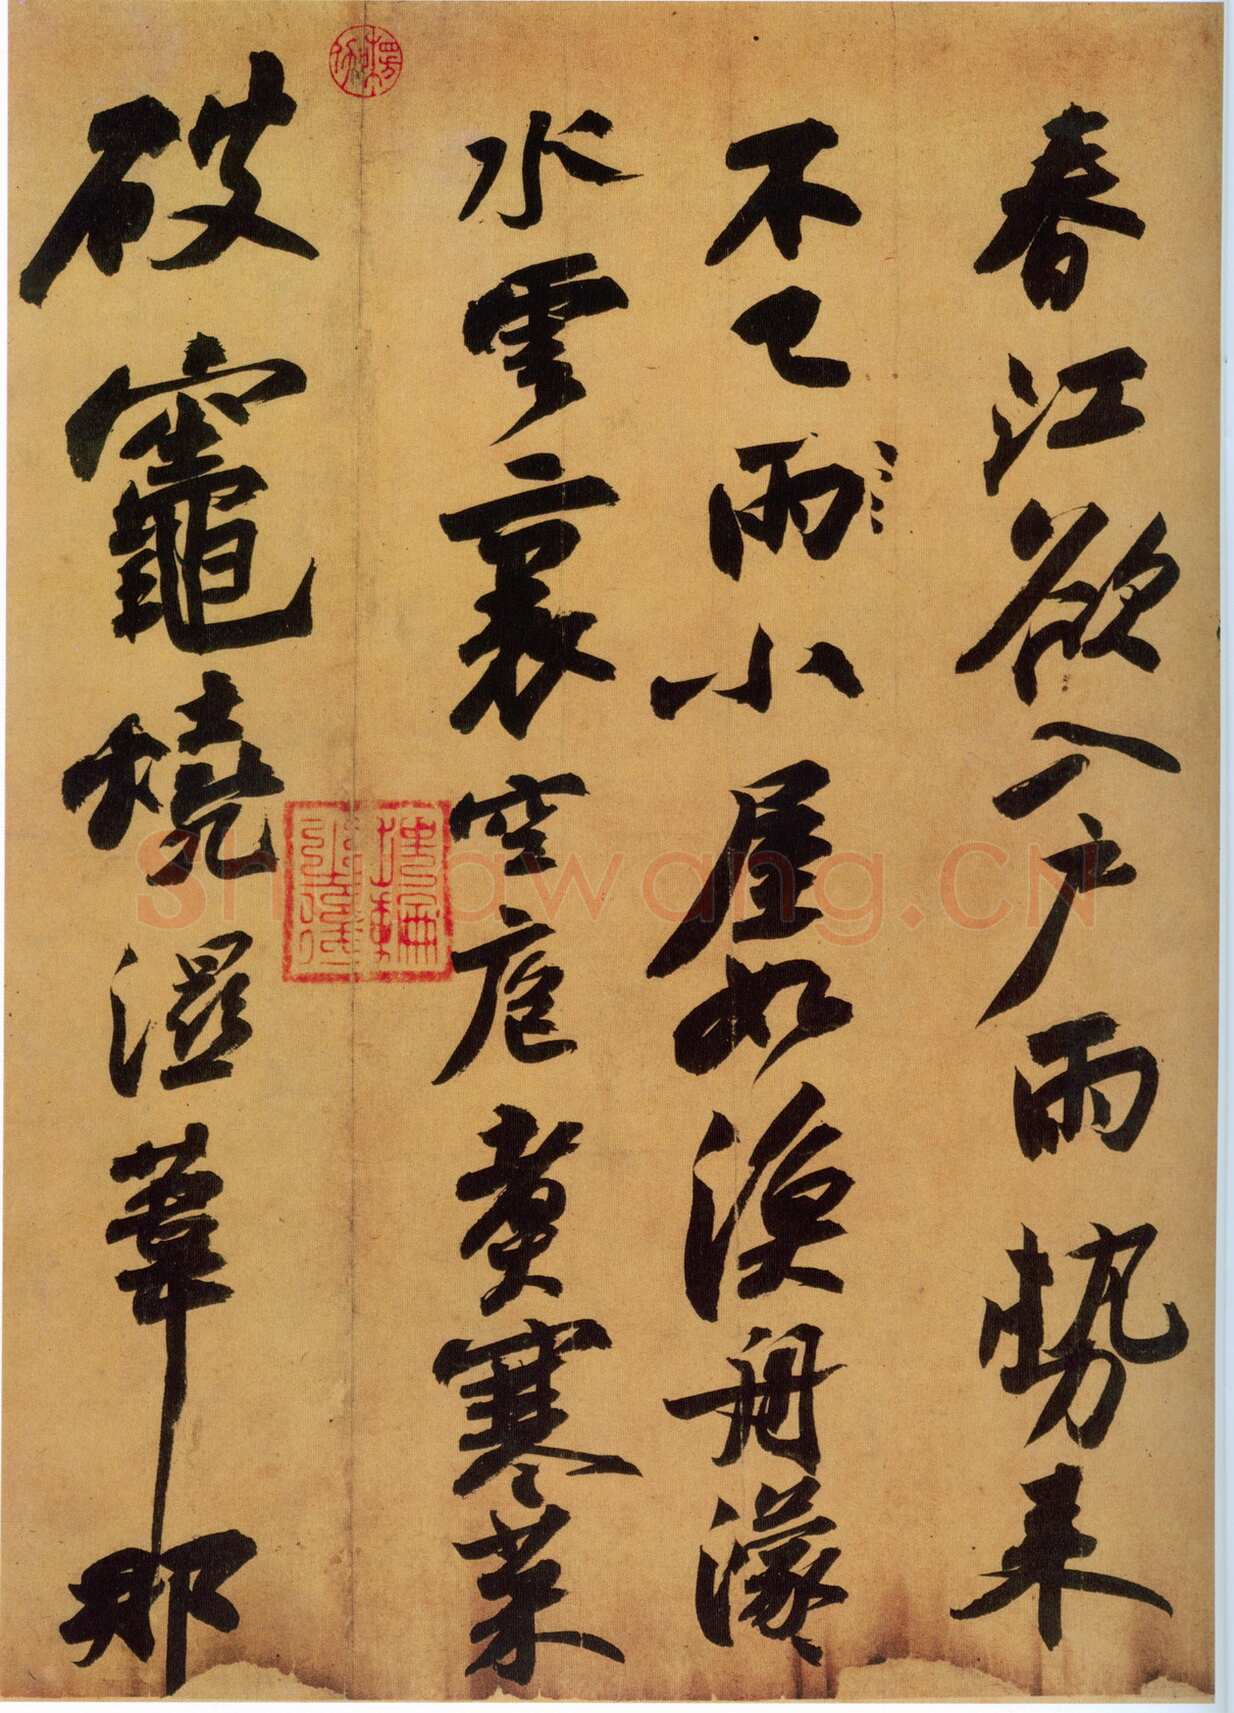 春江欲入戶雨勢来
不已雨小屋如漁舟濛
水雲裏空庖煮寒菜
破竈燒濕葦那
Shuhuawang.CN